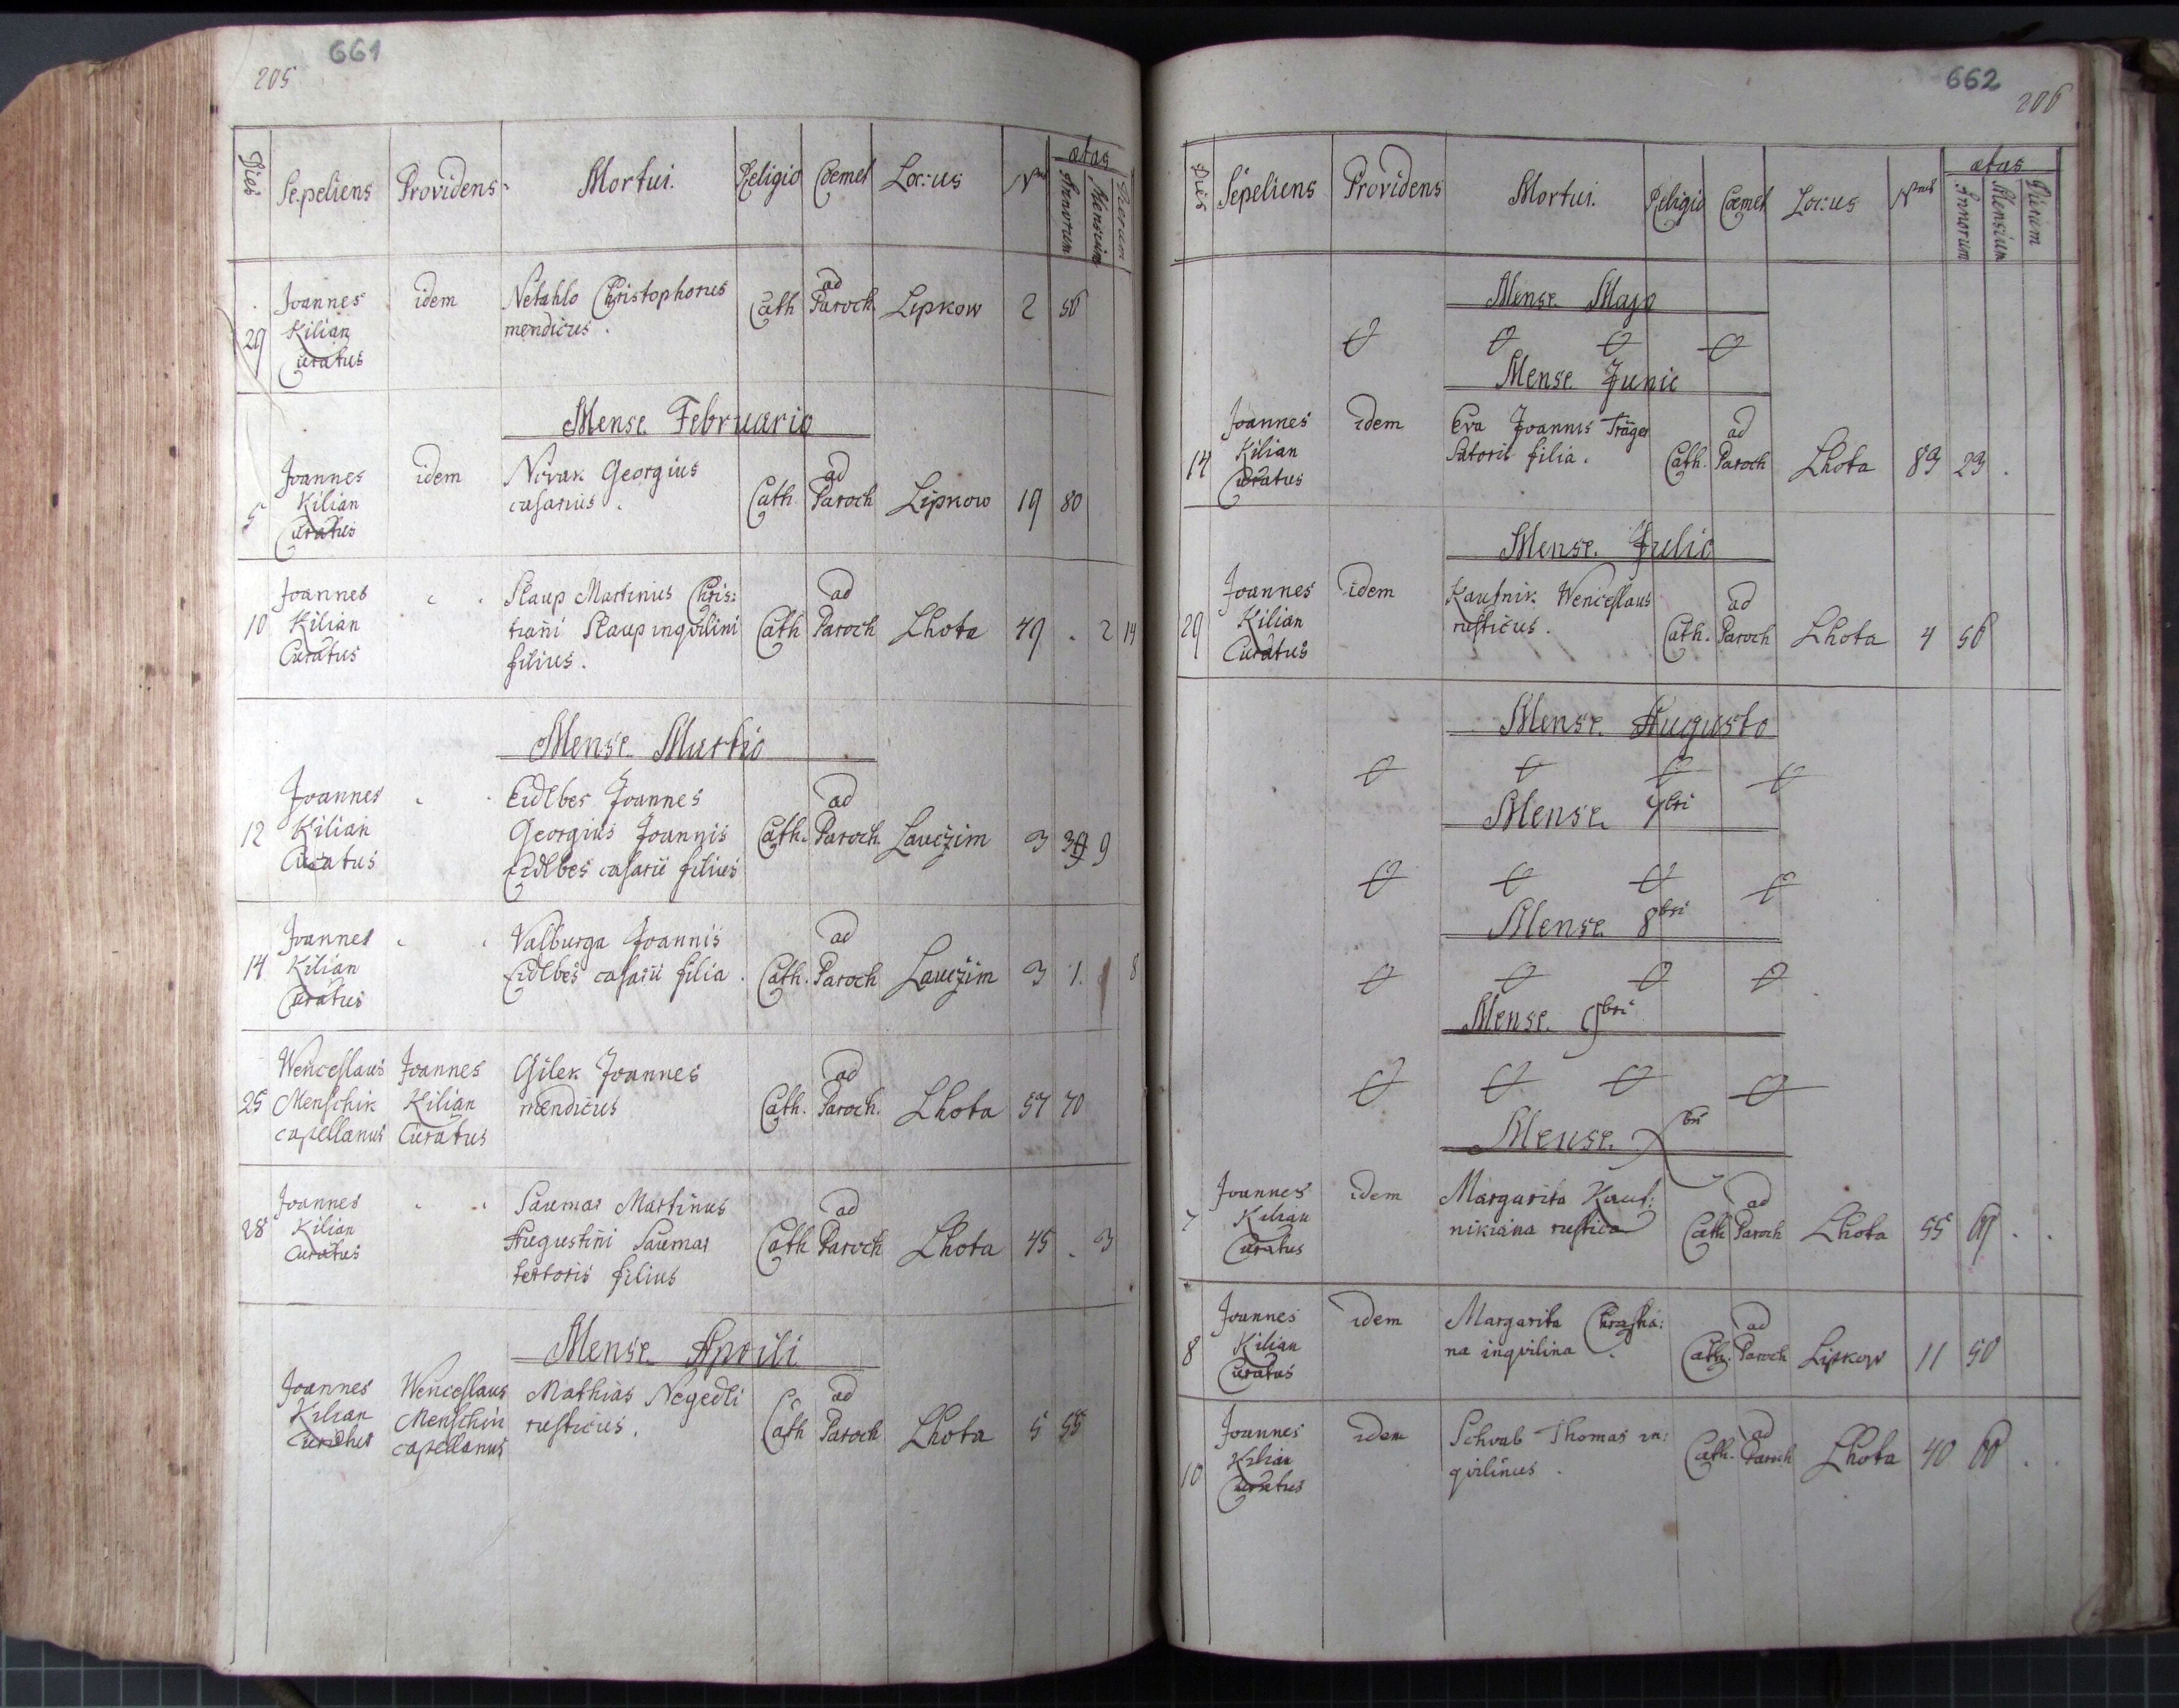 661
205
Dies Sepeliens Providens Mortui. Religio Coemet Locus Nus ætas
Annorum Mensium Dierum
Joannes idem Netahlo Christophorus ad
29 Kilian mendicus. Cath Paroch. Lipkow 2 56
Curatus
Mense Februario
Joannes idem Novak Georgius ad
5 Kilian casarius. Cath Paroch Lipkow 19 80
Curatus
Joannes Staup Martinus Chris: ad
10 Kilian tiani Staup inqvilini Cath Paroch Lhota 49 . 2 14
Curatus filius.
Mense Martio
Joannes Eidlbes Joannes ad
12 Kilian Georgius Joannis Cath. Paroch. Lauczim 3 9
Curatus Eidlbes casarii filius
Joannes Valburga Joannis ad
14 Kilian Eidlbes casarii filia. Cath. Paroch Lauczim 3 1. 8
Curatus
Wenceslaus Joannes Gilek Joannes ad
25 Menschik Kilian mendicus Cath. Paroch. Lhota 57 70
capellanus Curatus
Joannes Saumar Martinus ad
28 Kilian Augustini Saumar Cath Paroch Lhota 45 . 3
Curatus textoris filius
Mense Aprili
Joannes Wenceslaus Mathias Negedli ad
Kilian Menschik rusticus. Cath Paroch Lhota 5 55
Curatus capellanus
662
206
Dies Sepeliens Providens Mortui. Religio Coemet Locus Nrus ætas
Annorum Mensium Dierum
Mense Majo
Mense Junio
Joannes idem Eva Joannis Träger ad
14 Kilian Sutoris filia. Cath. Paroch Lhota 83 23 .
Curatus
Mense Julio
Joannes idem Kautnik Wenceslaus ad
29 Kilian rusticus. Cath. Paroch Lhota 4 56
Curatus
Mense Augusto
Mense 7bri
Mense 8bri
Mense 9bri
Mense Xbri
Joannes idem Margarita Kaut: ad
7 Kilian nikiana rustica Cath Paroch Lhota 55 69 . .
Curatus
Joannes idem Margarita ad
8 Kilian na inqvilina . Cath. Paroch Lipkow 11 50
Curatus
Joannes idem Schwab Thomas in: ad
10 Kilian qvilinus. Cath. Paroch Lhota 40 60 . .
Curatus